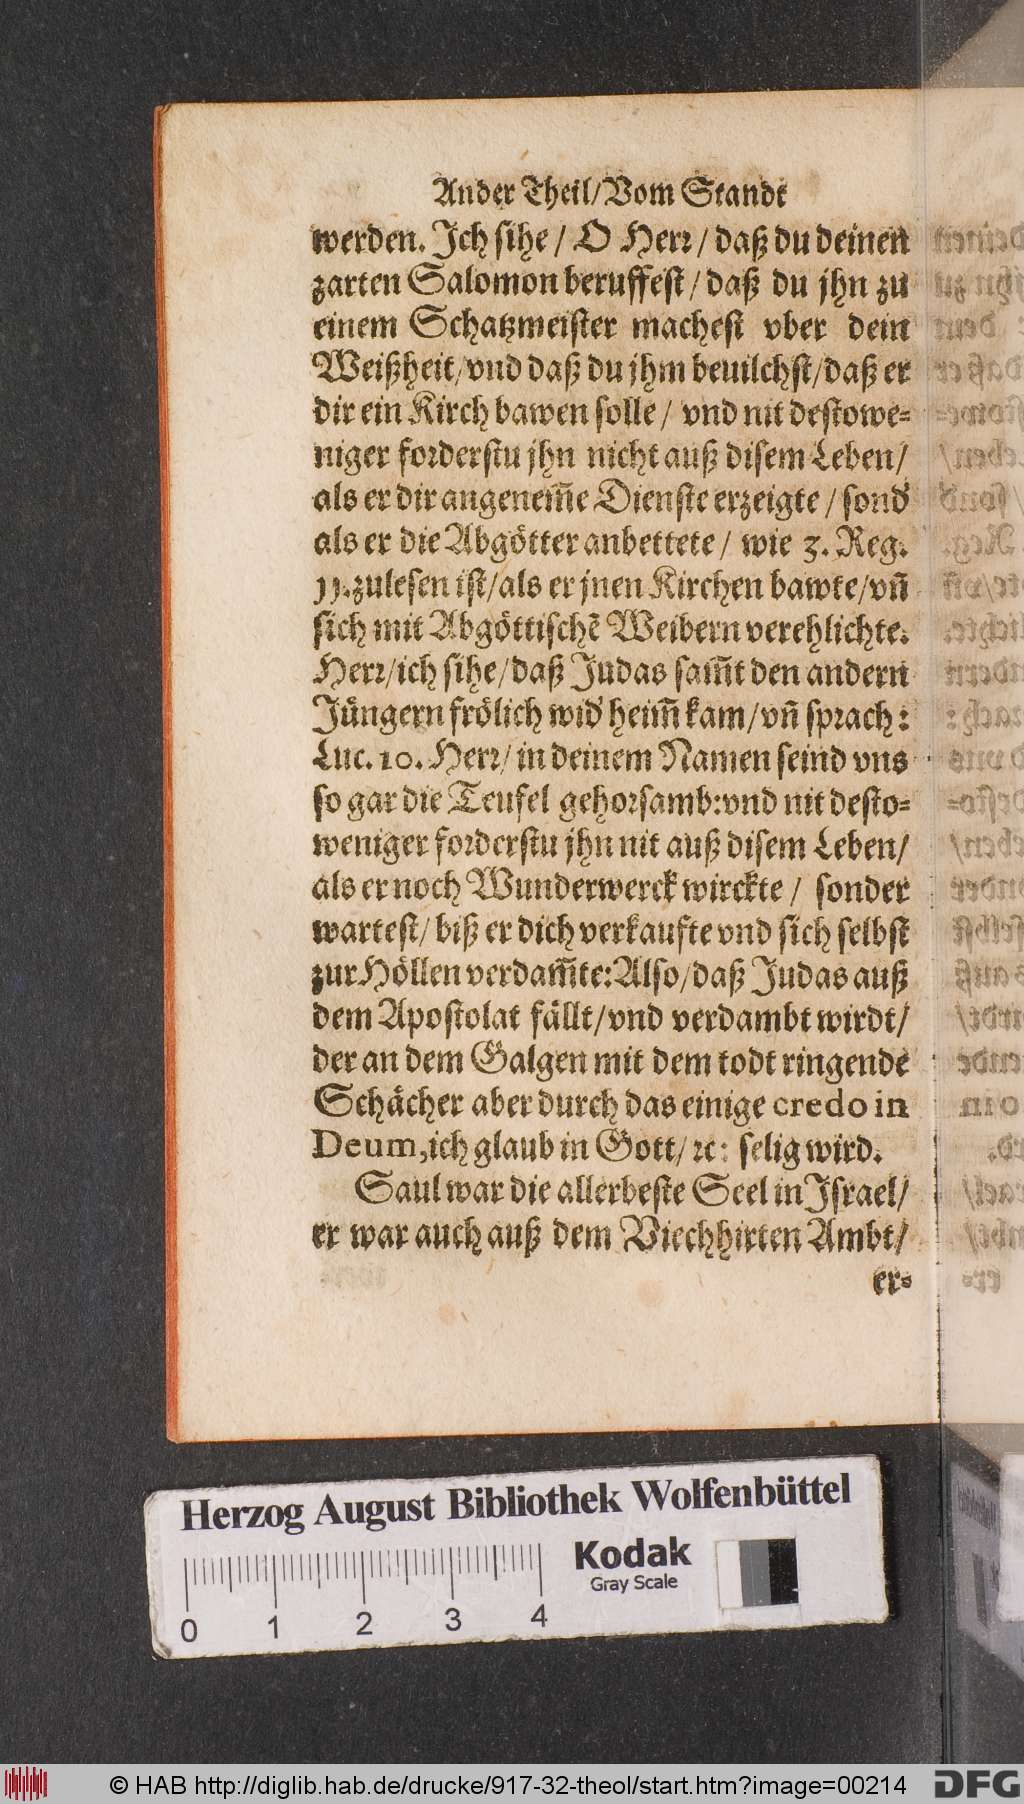 Ander Theil/Vom Standt
werden. Jch sihe / O Herr / daß du deinen
zarten Salomon beruffest / daß du jhn zu
einem Schatzmeister machest vber dein
Weißheit/vnd daß du jhm beuilchst/daß er
dir ein Kirch bawen solle / vnd nit destowe-
niger forderstu jhn nicht auß disem Leben/
als er dir angenem̃e Dienste erzeigte / sond'
als er die Abgötter anbettete / wie 3. Reg.
11. zulesen ist/als er jnen Kirchen bawte/vñ
sich mit Abgöttischẽ Weibern verehlichte.
Herr/ich sihe/daß Judas sam̃t den andern
Jüngern frölich wid' heim̃ kam/vñ sprach:
Luc. 10. Herr/ in deinem Namen seind vns
so gar die Teufel gehorsamb:vnd nit desto-
weniger forderstu jhn nit auß disem Leben/
als er noch Wunderwerck wirckte / sonder
wartest/ biß er dich verkaufte vnd sich selbst
zur Höllen verdam̃te:Also/daß Judas auß
dem Apostolat fällt/vnd verdambt wirdt/
der an dem Galgen mit dem todt ringende
Schächer aber durch das einige credo in
Deum,ich glaub in Gott/ ꝛc: selig wird.
Saul war die allerbeste Seel in Jsrael/
er war auch auß dem Viechhirten Ambt/
er-
Herzog August Bibliothek Wolfenbüttel
Kodak
Gray Scale
0 1 2 3 4
© HAB http://diglib.hab.de/drucke/917-32-theol/start.htm?image=00214
DFG